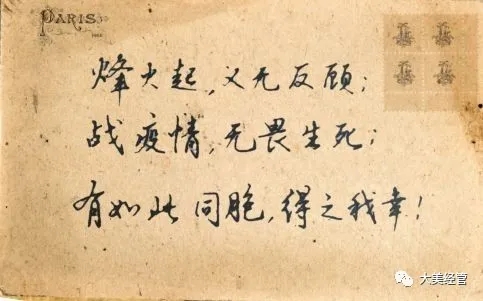 PARIS
烽火起，义无反顾；
战疫情，无畏生死；
有如此同胞，得之我幸！
大美经管